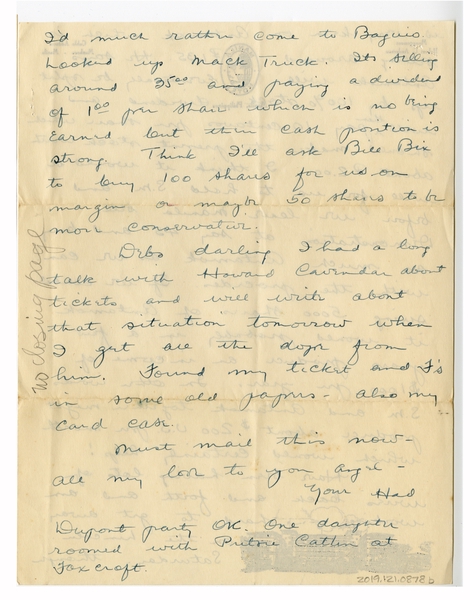 I'd much rather come to Baguio.
Looked up Mack Truck. Its selling
around 35 00 and paying a dividend
of 1 00 per share which is no being
earned but their cash position is
strong. Think I'll ask Bill Bix
to buy 100 shares for us on
margin or maybe 50 shares to be
more conservative.
Debs darling I had a long
talk with Howard Cavender about
tickets and will write about
that situation tomorrow when
I get all the dope from
him. Found my ticket and J's
in some old papers - also my
card case.
Must mail this now -
All my love to you angel -
Your Had
Dupont party OK. One daughter
roomed with Catlin at
Foxcroft.
no closing page
2019.121.0878b